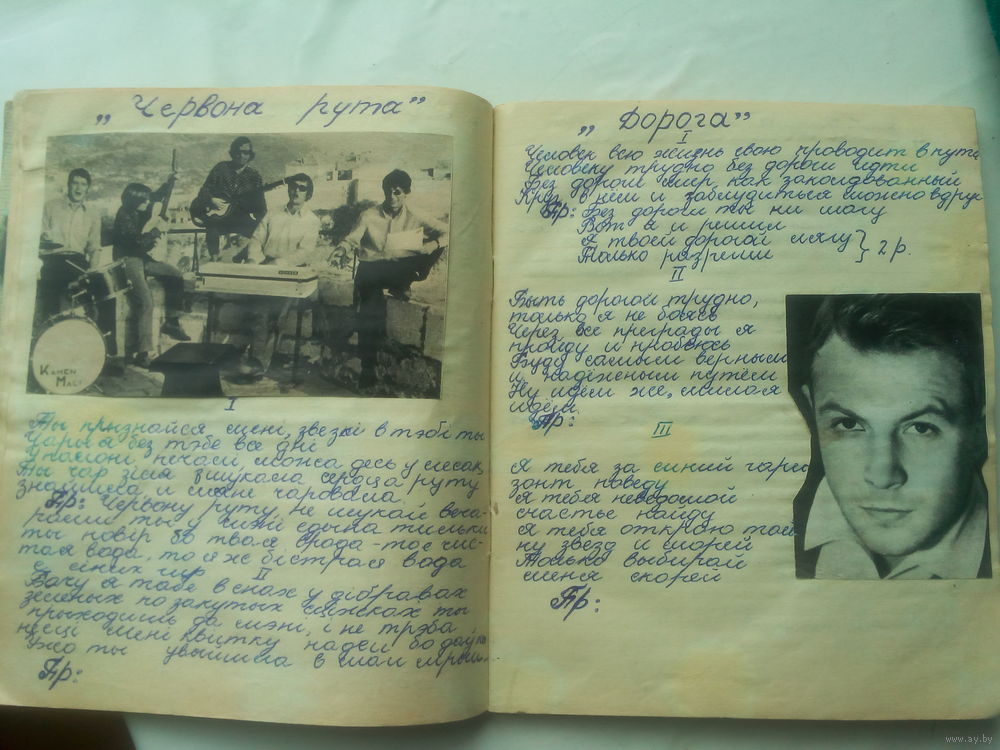 „Червона рута”
KAMEN
MALI
I
Ты прызнайся мені, звезкі в тэбі ты
Чары я без тэбе все дні
у полоні печалі, можа десь у лесах,
Ты чар зілля шукала сонца руту
знайшла и мэне чаровала.
Пр: Червону руту, не шукай веча-
рами ты у мэні едына тильки
ты повір бо твоя врода - тое чис-
тая вода, то я ж бістрая вода
с синіх гир
II
Бачу я тебе в снах у дібравах
зеленых по закутых стіжках ты
прыходишь да мэні, і не трэба
несці мені квитку надеи бо даўно
Ужо ты увышила в маи мрыи
Пр:
„Дорога”
I
Человек всю жизнь свою проводит в пути
Человеку трудно без дороги идти
Без дороги мир как заколдованный
Круг, в нём и заблудиться можно вдруг
Пр: Без дороги ты ни шагу
Вот я и решил
Я твоей дорогой лягу } 2 р.
Только разреши
II
Быть дорогой трудно,
только я не боюсь
Через все преграды я
пройду и пробьюсь
Буду самым верным
и надёжным путём
Ну идём же, милая
идём.
Пр:
III
Я тебя за синий гори
зонт поведу
Я тебя неведомой
счастье найду
Я тебя открою тай
ну звёзд и морей
Только выбирай
меня скорей
Пр:
www.ay.by